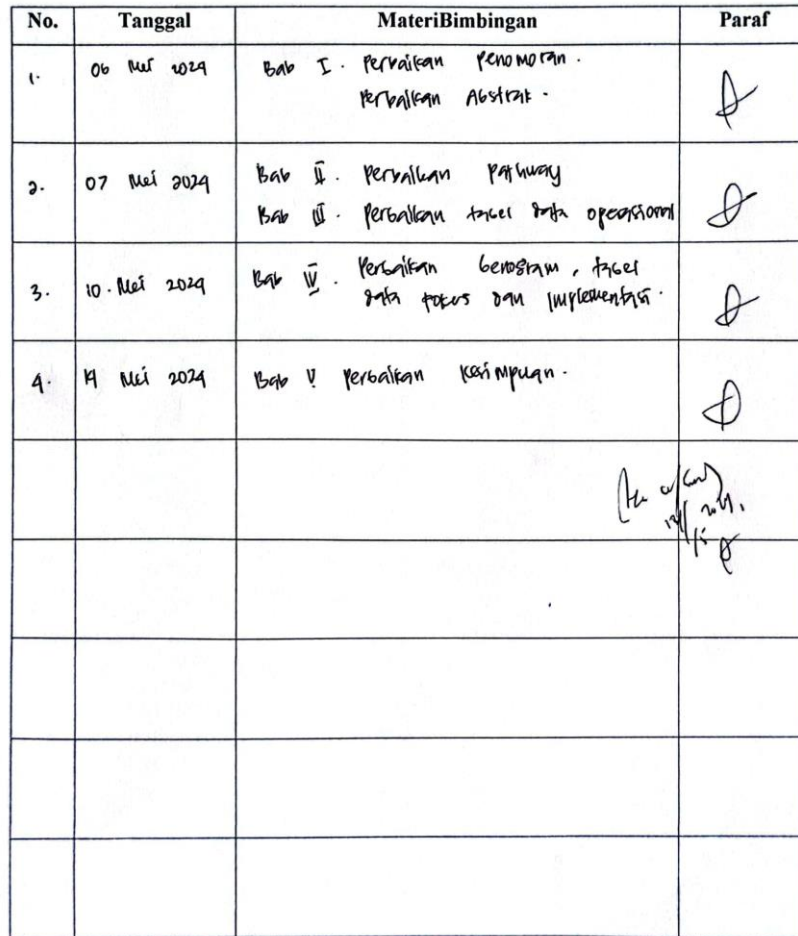 No. Tanggal MateriBimbingan Paraf
1. 06 Mei 2024 Bab I. Perbaikan Penomoran.
Perbaikan Abstrak.
2. 07 Mei 2024 Bab II. Perbaikan Pathway
Bab III. Perbaikan tabel data operasional
3. 10. Mei 2024 Bab IV. Perbaikan Genogram, tabel
data fokus dan Implementasi.
4. 14 Mei 2024 Bab V Perbaikan Kesimpulan.